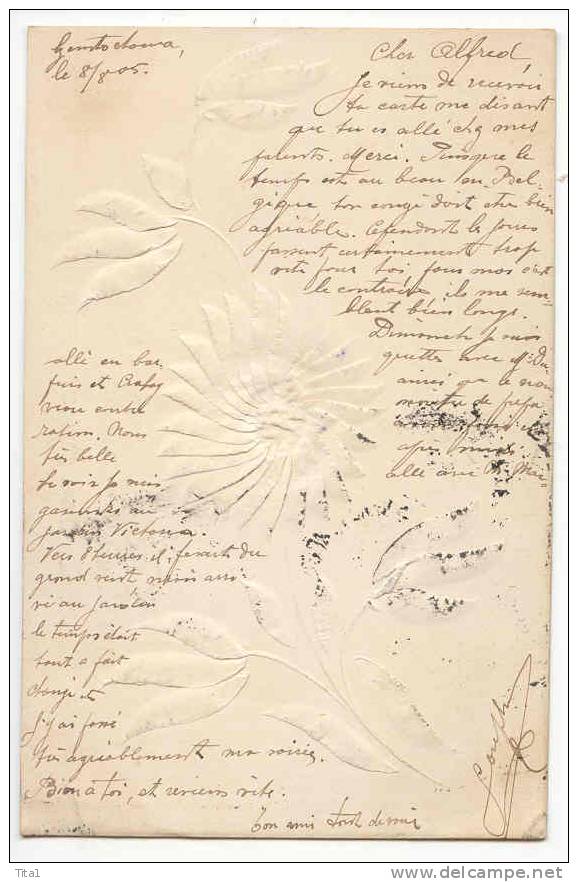 le 8/8 05.
Cher Alfred,
Je viens de recevoir
ta carte me disant
que tu es allé chez mes
parents. Merci. Puisque le
temps est au beau en Bel-
gique ton congé doit être bien
agréable. Cependant les jours
passent certainement trop
vite pour toi, pour moi c'est
le contraire, ils me sem-
blent bien longs.
Dimanche je suis
allé en bar-
quettes avec Mr
et
de papa
ration. Nous
très belle
allé avec
le soir je suis
au
jardin Victoria.
Vers 8 heures il faisait du
grand vent mais arri-
vé au jardin
le temps était
tout à fait
changé et
j'y ai passé
très agréablement ma soirée.
Bien à toi, et reviens vite.
ton ami
Tita1
www.delcampe.net